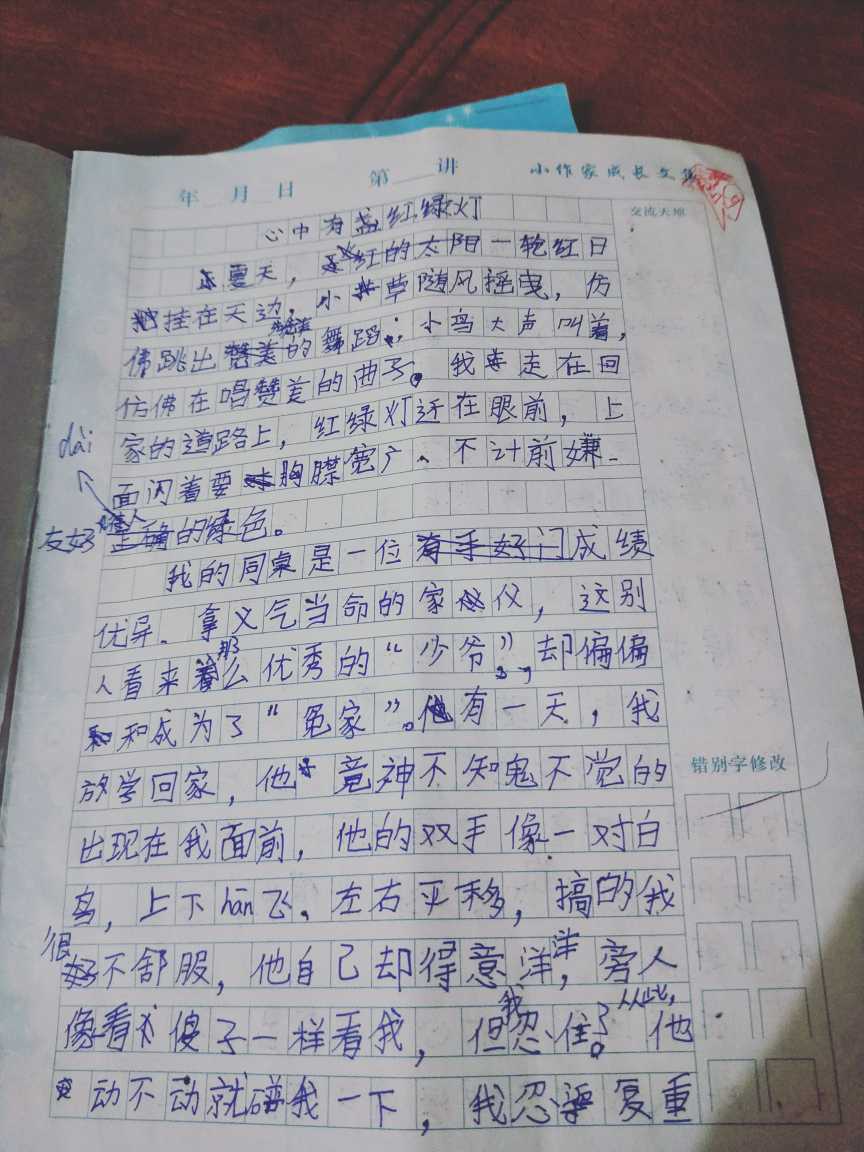 年 月 日 第 讲 小作家成长文集
交流天地
心中有盏红绿灯
夏天，红的太阳一轮红日
挂在天边，小草随风摇曳，仿
佛跳出赞美的舞蹈；小鸟大声叫着，
仿佛在唱赞美的曲子。我走在回
家的道路上，红绿灯还在眼前，上
dài
面闪着要胸襟宽广、不计前嫌、
友好待人的绿色。
我的同桌是一位成绩
优异、拿义气当命的家伙，这别
人看来那么优秀的“少爷”，却偏偏
和成为了“冤家”。有一天，我
放学回家，他竟神不知鬼不觉的
错别字修改
出现在我面前，他的双手像一对白
鸟，上下hān飞、左右平移，搞的我
很不舒服，他自己却得意洋洋，旁人
像看傻子一样看我，但我忍住了。从此，他
动不动就碰我一下，我忍复重